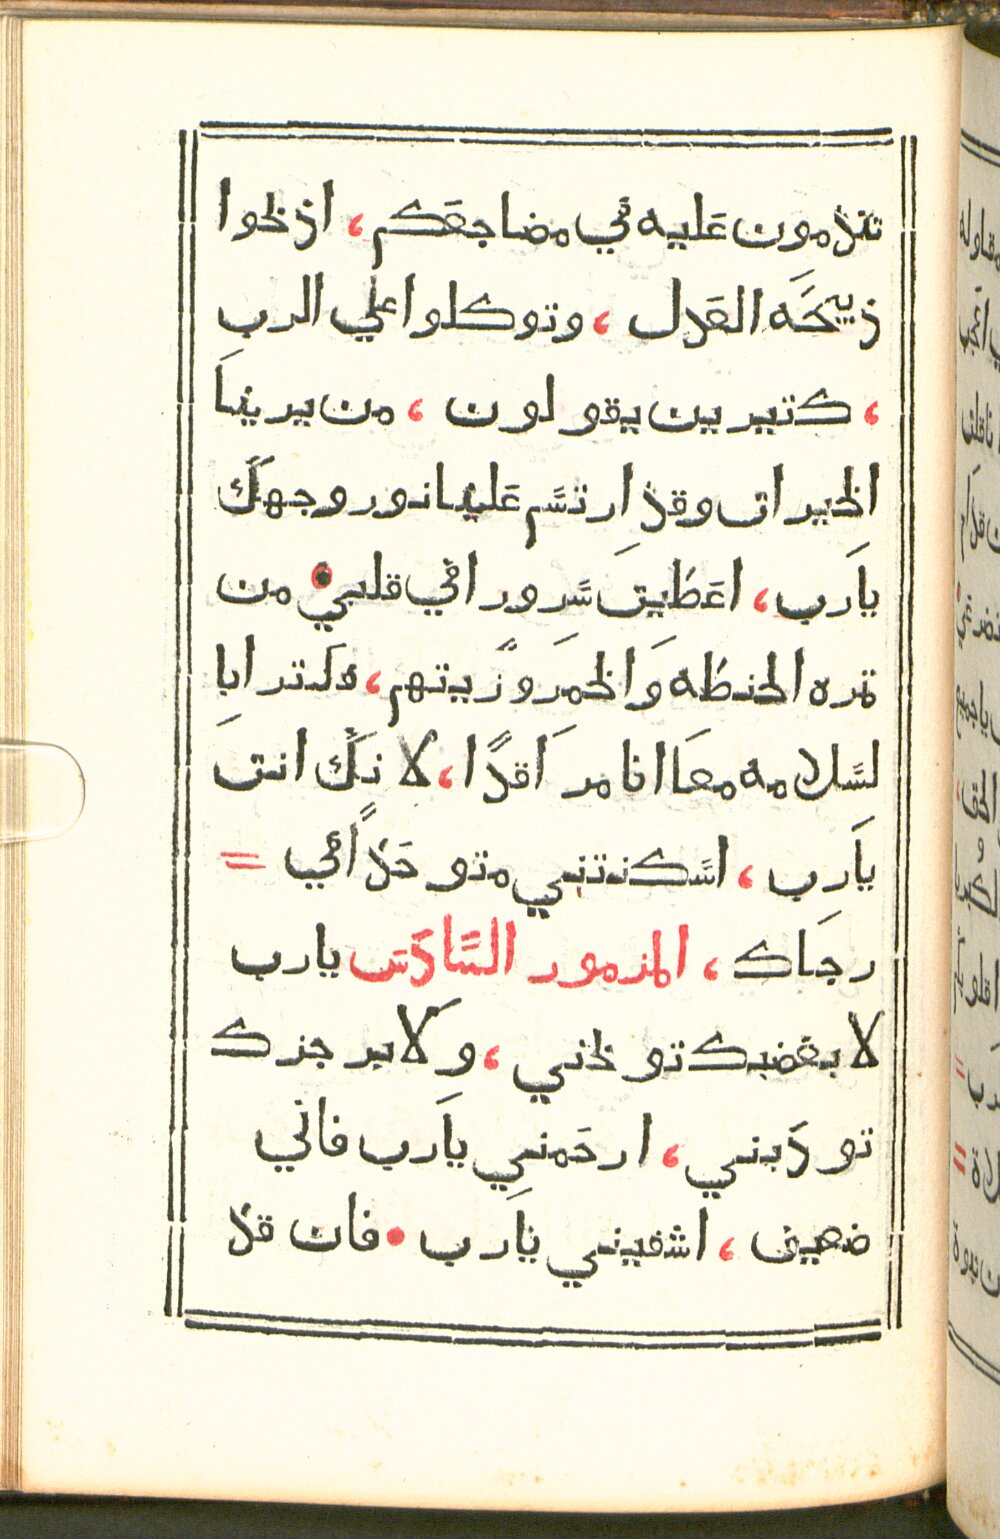 تندمون عليه في مضاجعكم، اذبحوا
ذبيحه العدل، وتوكلوا علي الرب
، كتيرين يقولون، من يرينا
الخيرات وقد ارتسم علينا نور وجهك
يارب، اعطيت سرورا في قلبي من
ثمره الحنطه والخمر وزيتهم،
لسلامه معا انا مراقدا، لانك انت
يارب، اسكنتني متوحدا في =
رجاك، المزمور السادس يارب
لا بغضبك توبخني، ولا برجزك
تودبني، ارحمني يارب فاني
ضعيف، اشفيني يارب • فان قد